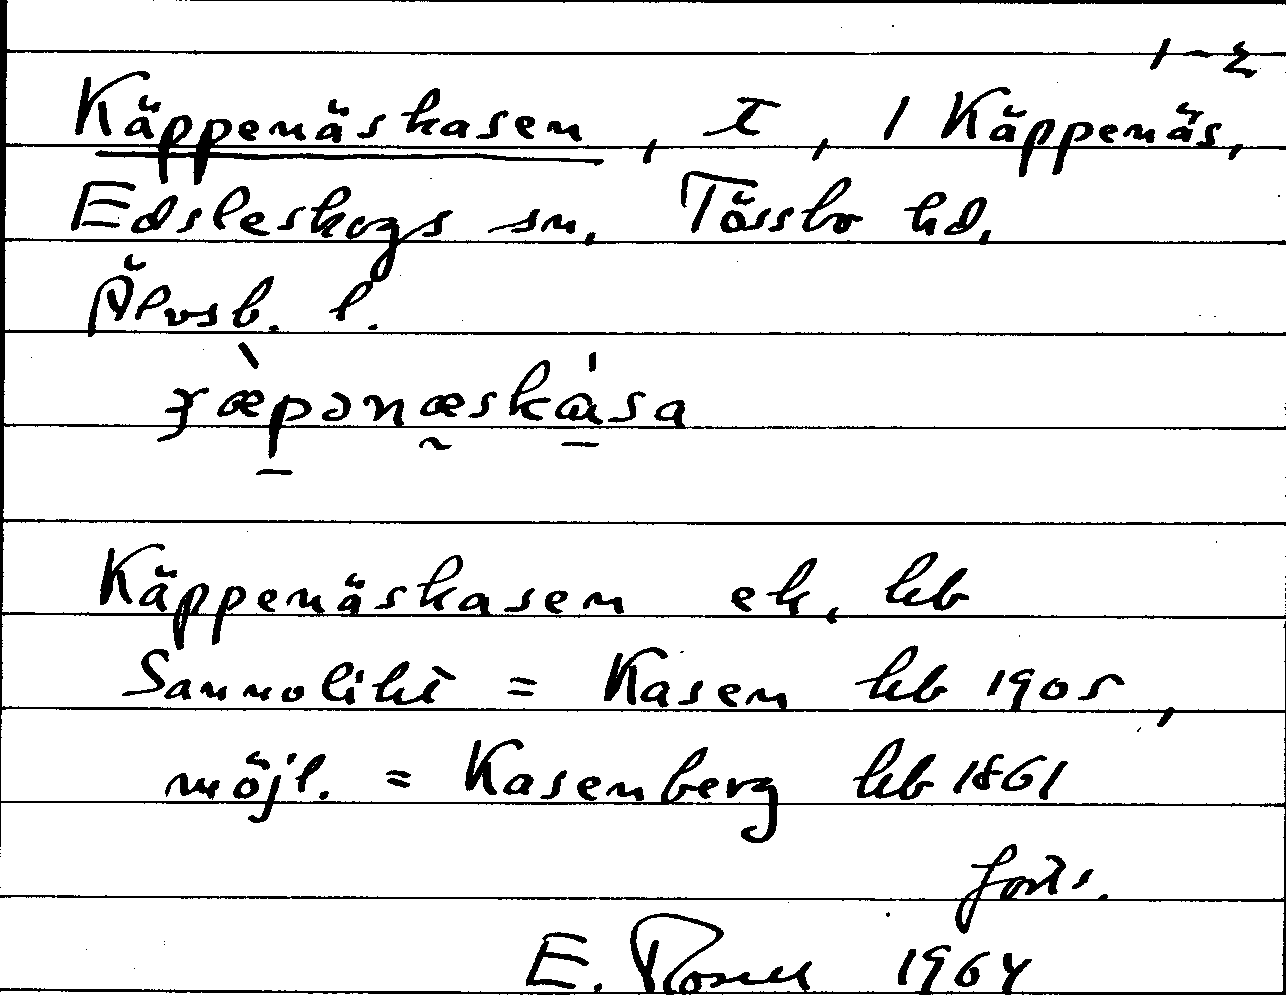 1-2
Käppenäskasen, t, 1 Käppenäs,
Edsleskogs sn. Tössbo hd.
Älvsb. l.
Käppenäskasen ek. hb
Sannolikt = Kasen hb 1905,
möjl. = Kasenberg hb 1861
forts.
E. 1964